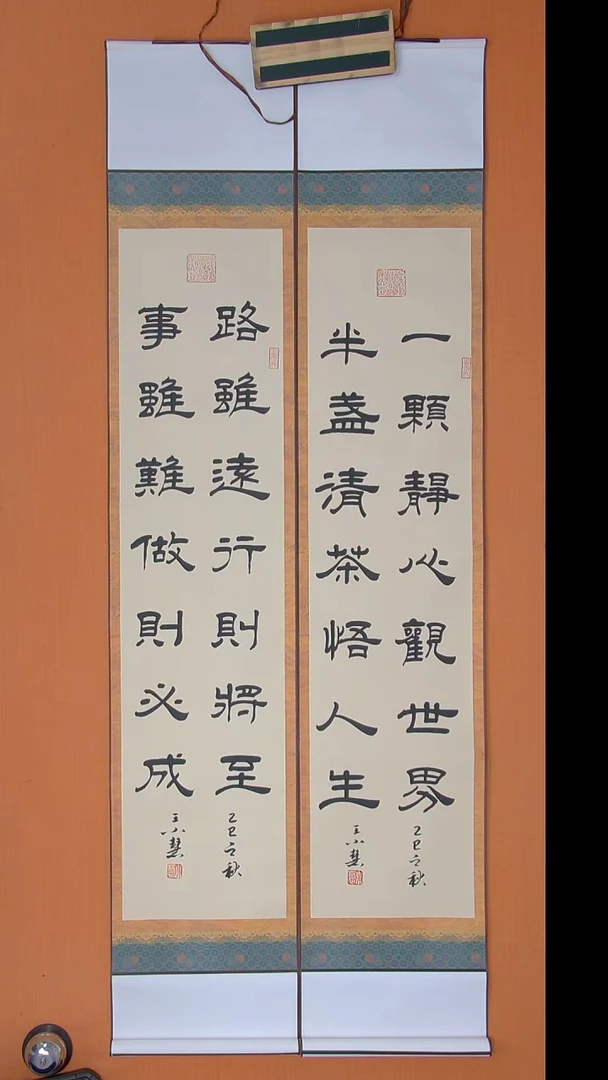 一顆靜心觀世界
半盞清茶悟人生
乙巳之秋
王小慧
路雖遠行則將至
事雖難做則必成
乙巳之秋
王小慧